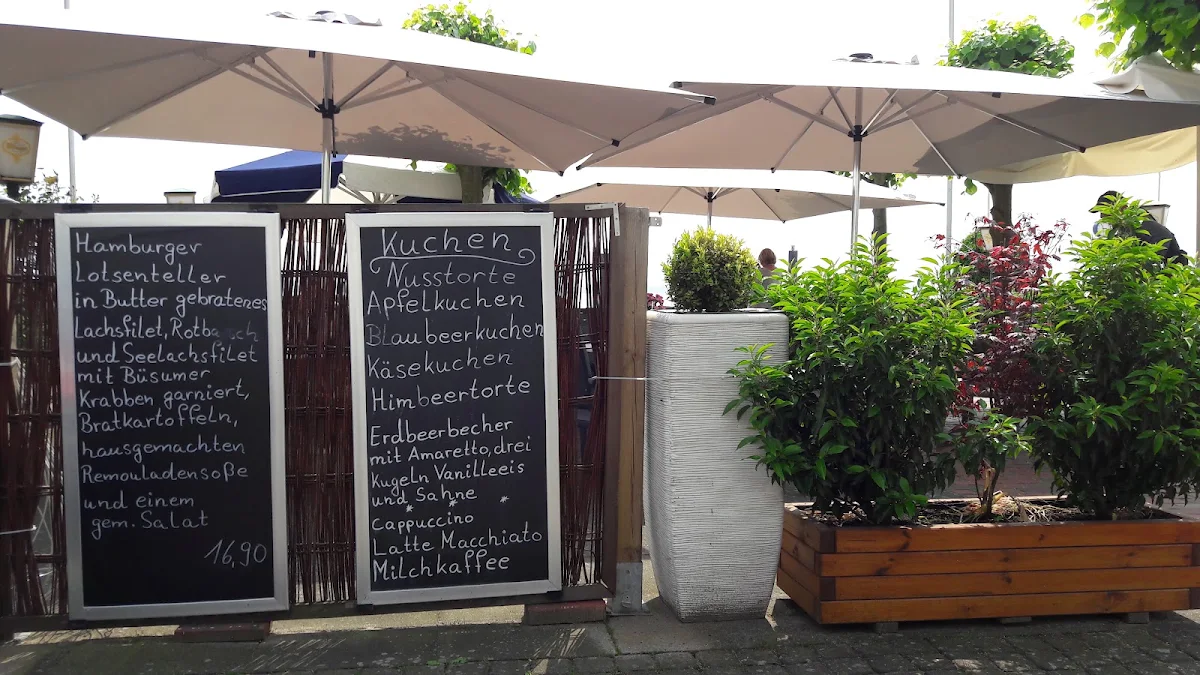 Hamburger
Lotsenteller
in Butter gebratenes
Lachsfilet, Rotbarsch
und Seelachsfilet
mit Büsumer
Krabben garniert,
Bratkartoffeln,
hausgemachten
Remouladensoße
und einem
gem. Salat
16,90
Kuchen
Nusstorte
Apfelkuchen
Blaubeerkuchen
Käsekuchen
Himbeertorte
Erdbeerbecher
mit Amaretto, drei
Kugeln Vanilleeis
und Sahne
Cappuccino
Latte Macchiato
Milchkaffee